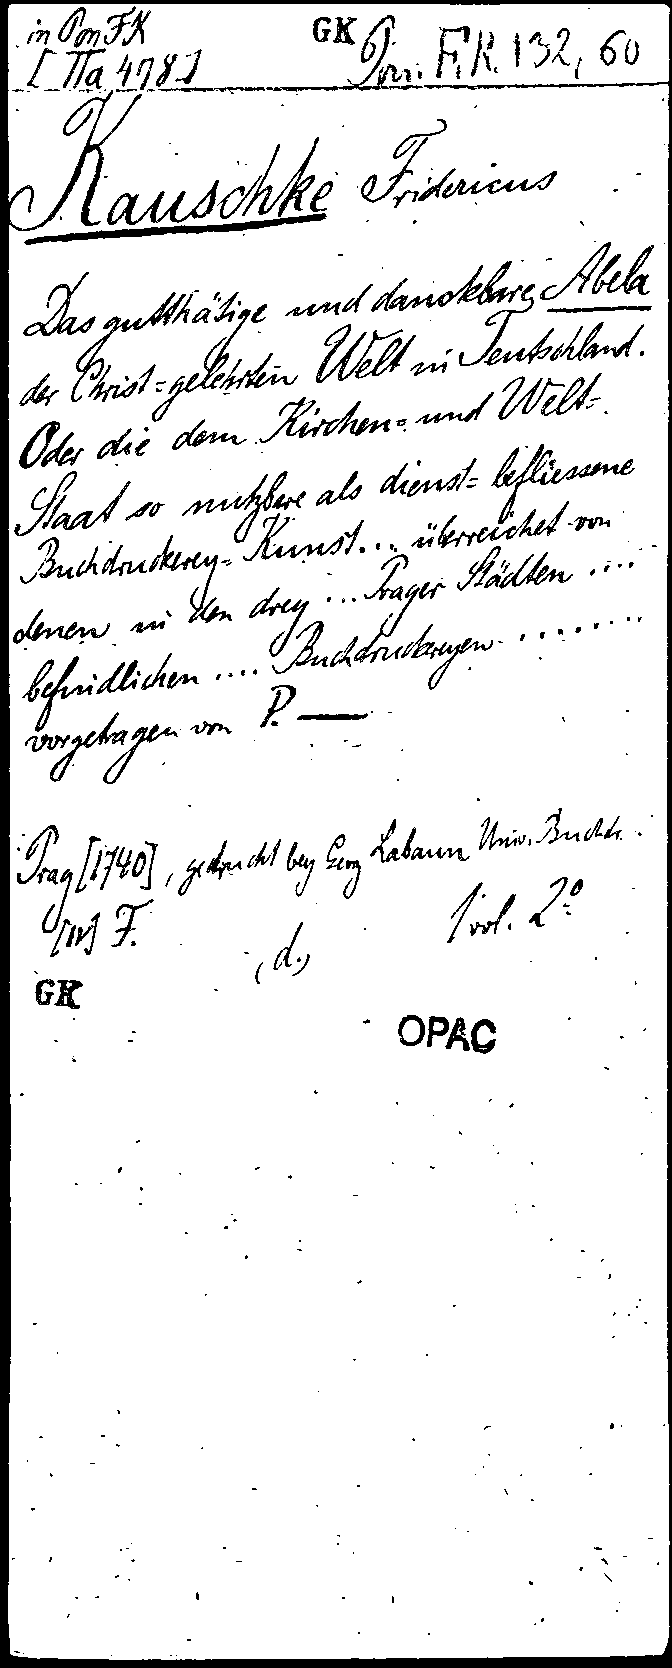 in Pon FK
GK Pon. F.K. 132, 60
[IIa 478]
Kauschke Fridericus
Das gutthätige und danckbare Abela
der Christ=gelehrten Welt in Teutschland.
Oder die dem Kirchen= und Welt=
Staat so nutzbare als dienst=befliessene
Buchdruckerey=Kunst... überreichet von
denen in den drey ... Prager Städten ....
befindlichen .... Buchdruckereyen ........
vorgetragen von P. —
Prag [1740], gedruckt bey Georg Labaun Univ. Buchdr.
F. 1 vol. 2°
(d.)
GK
OPAC